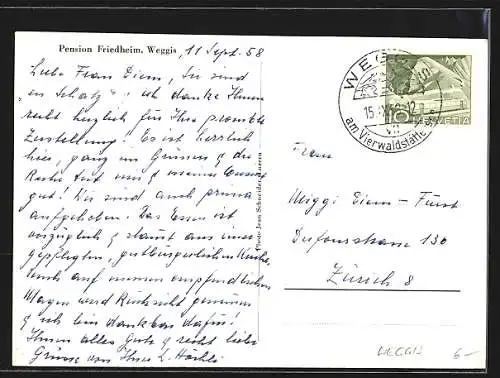 Pension Friedheim, Weggis, 11 Sept. 58
Liebe Frau Diem, Sie sind
ein Schatz! ich danke Ihnen
recht herzlich für Ihre prompte
Zustellung! Es ist herrlich
hier, ganz im Grünen & die
Ruhe tut uns &
gut! Wir sind auch prima
aufgehoben. Das Essen ist
vorzüglich & stammt aus einer
gepflegten, gutbürgerlichen Küche,
auch auf meinen empfindlichen
Magen wird Rücksicht genommen
& ich bin dankbar dafür!
Ihnen alles Gute & recht liebe
Grüsse von Ihrer L.
Photo Jean Schneider, Luzern
WEGGIS
am Vierwaldstättersee
HELVETIA
10
Frau
Miggi Diem-Fürst
Dufourstrasse 130
Zürich 8
WEGGIS 6-